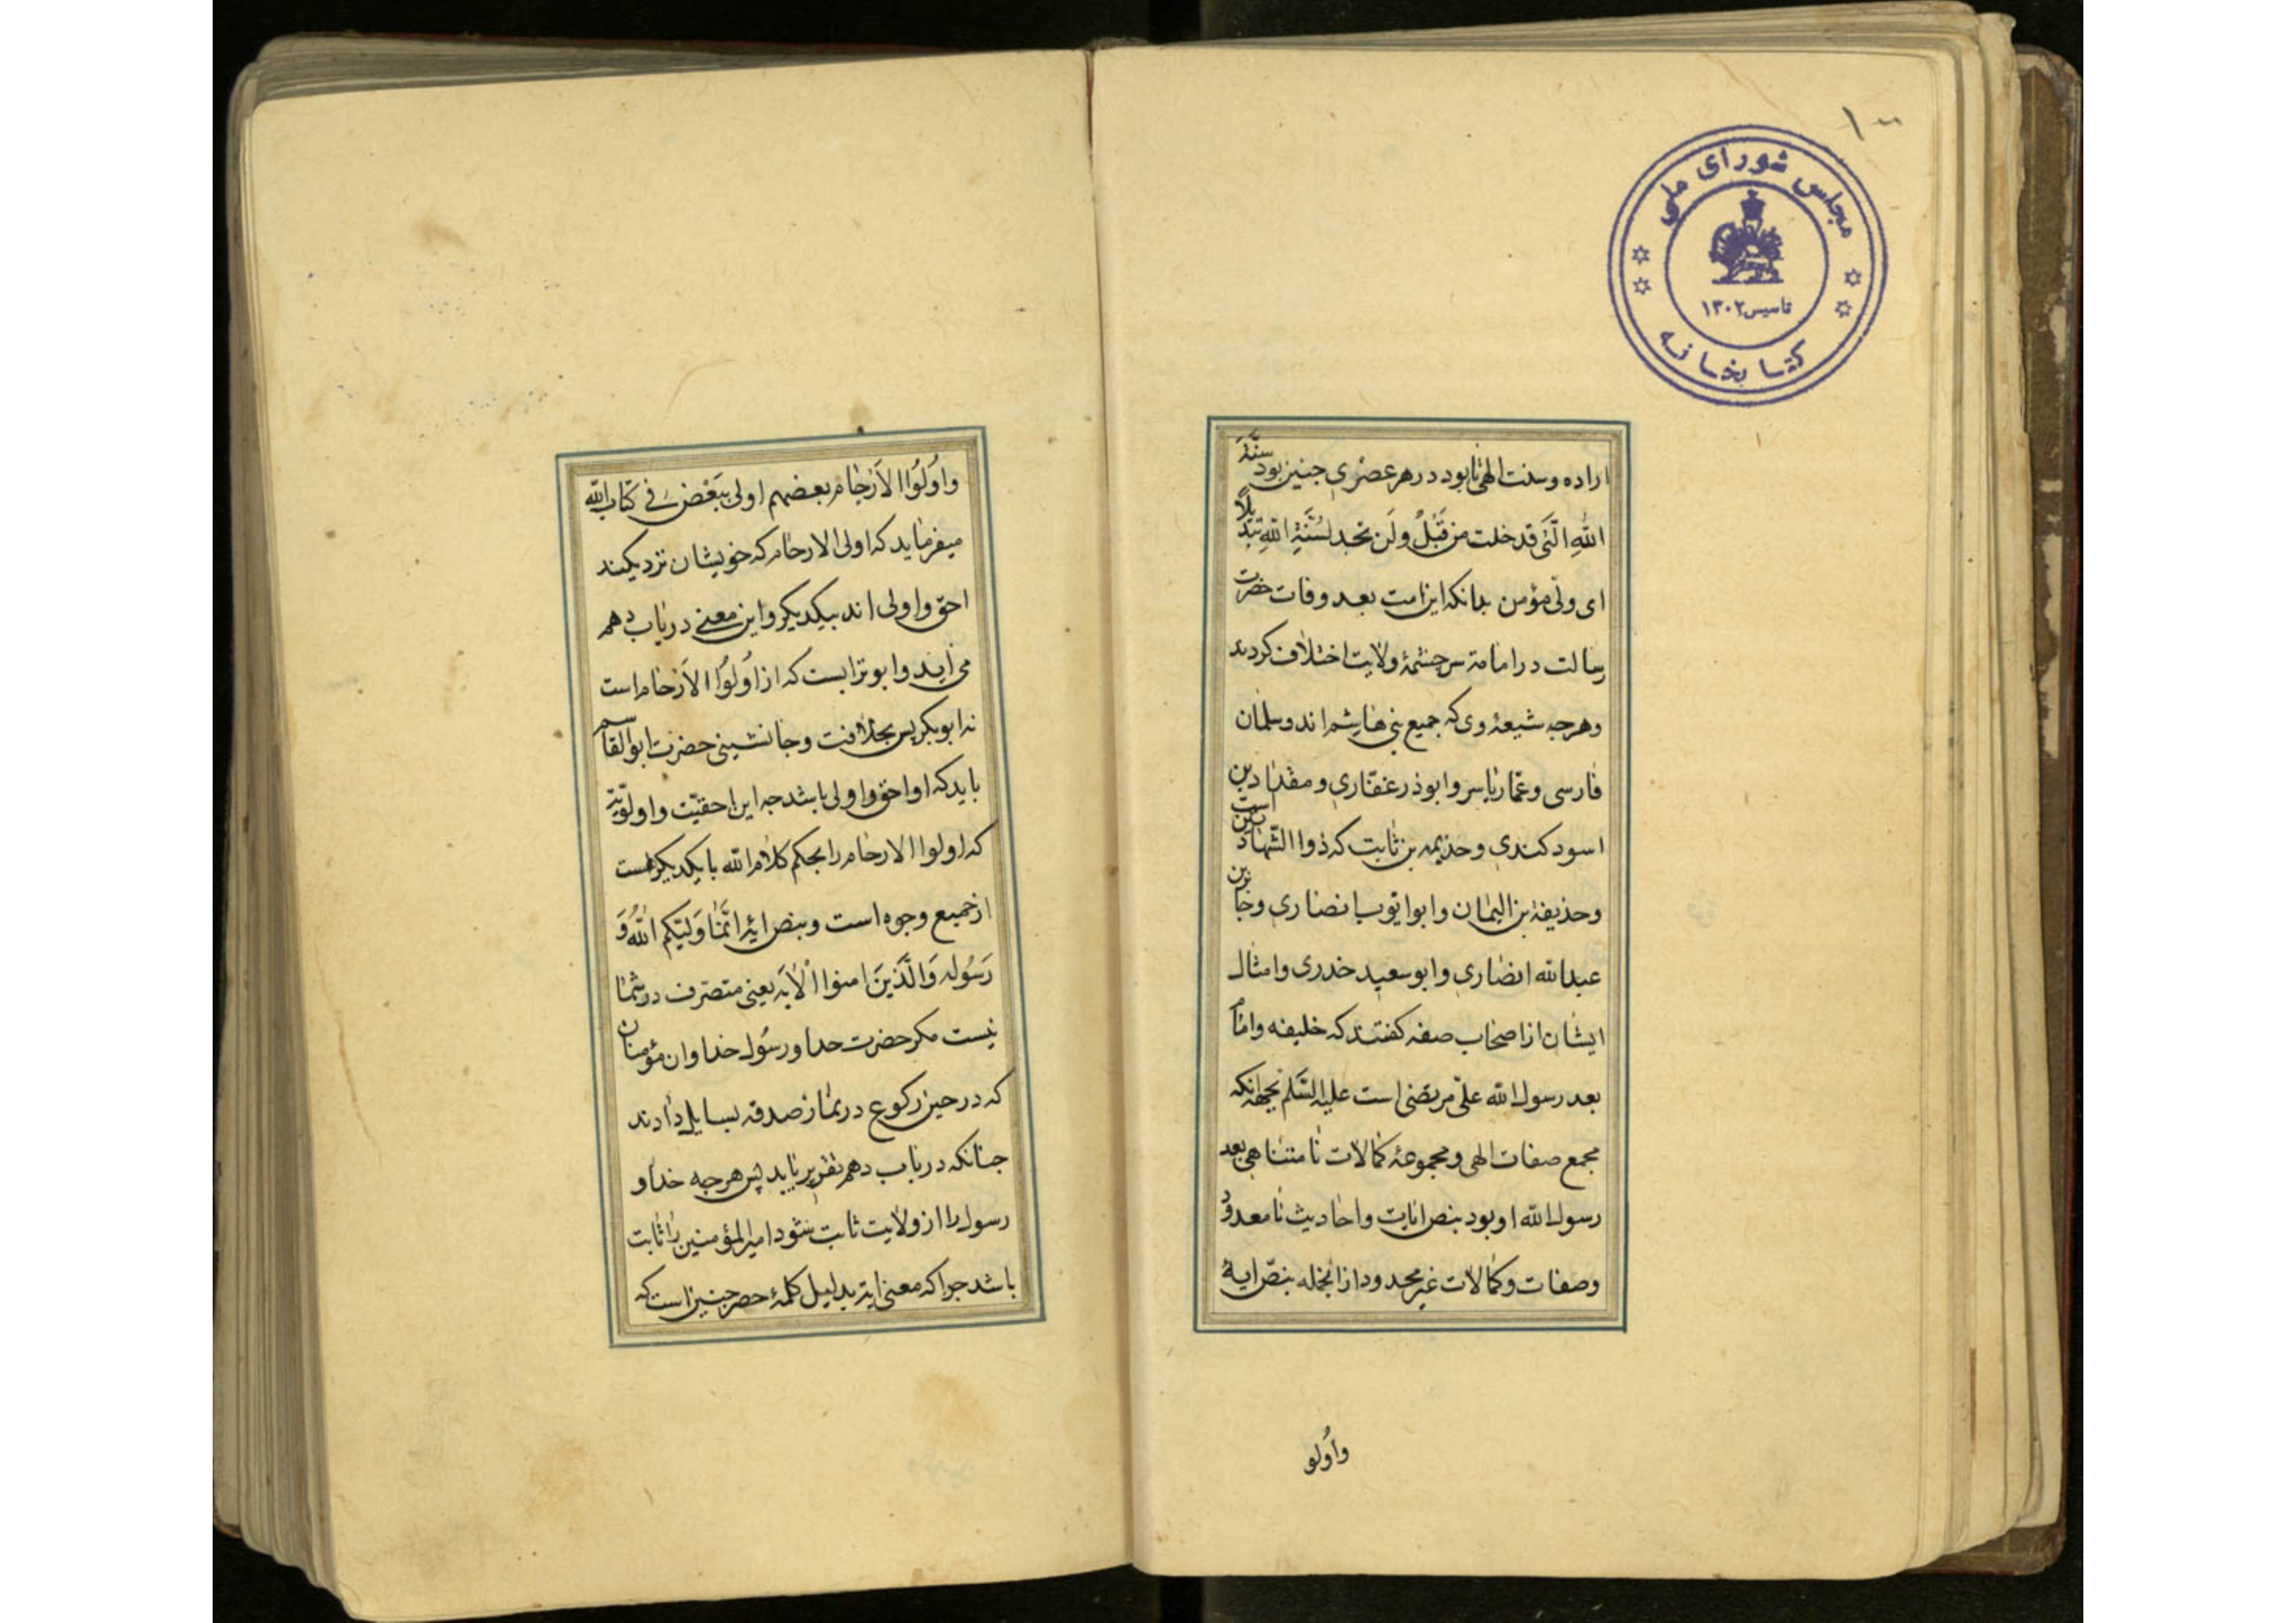 ۱۰۰
مجلس شورای ملی
تاسیس ۱۳۰۲
کتابخانه
اراده وسنت الهی تا بود در هر عصری جنین بود سنة
الله الّتی قد خلت من قبْلُ ولَن تجد لسُنّةِ اللهِ تبدیلاً
ای ولی مؤمن بدانکه این امت بعد وفات حضرت
رسالت در امامة سرچشمهٔ ولایت اختلاف کردند
وهرجه شیعهٔ وی که جمیع بنی هاشم اند وسلمان
فارسی وعمّار یاسر وابوذر غفّاری ومقداد بن
اسود کندی وحذیمه بن ثابت که ذوا الشّهادتین است
وحذیفة بن الیمان وابو ایّوب انصاری وجابر بن
عبدالله انصاری وابو سعید خدری وامثال
ایشان از اصحاب صفه کفتند که خلیفه وامام
بعد رسول الله علّی مرتضی است علیه السّلم بجهة انکه
مجمع صفات الهی ومجموعهٔ کمالات نامتناهی بعد
رسول الله او بود بنص ایات واحادیث نامعدود
وصفات وکمالات غیر محدود از انجمله بنصّ ایهٔ
واُولو
واُولُوا الاَرْحام بعضهم اولی ببَعْض فی کتاب الله
میفرماید که اولی الارحام که خویشان نزدیکند
احق واولی اند بیکدیکر واین معنی در باب دهم
می آید وابو ترابست که از اُولُوا الاَرْحام است
نه ابو بکر پس بخلافت وجانشینی حضرت ابوالقاسم
باید که او احق واولی باشد جه این احقیّت واولویّت
که اولوا الارحام را بحکم کلام الله با یکدیکر هست
از جمیع وجوه است وبنص ایهٔ انّما وَلیّکم اللهُ وَ
رَسُوله وَالَّذینَ امنوا الْایَه یعنی متصرف در شما
نیست مکر حضرت خدا ورسُول خدا وان مؤمنان
که در حین رکوع در نماز صدقه بسایل دادند
جنانکه در باب دهم تقریر یابد پس هرجه خدا و
رسول را از ولایت ثابت شود امیر المؤمنین را ثابت
باشد جرا که معنی ایة بدلیل کلمهٔ حصر جنین است که